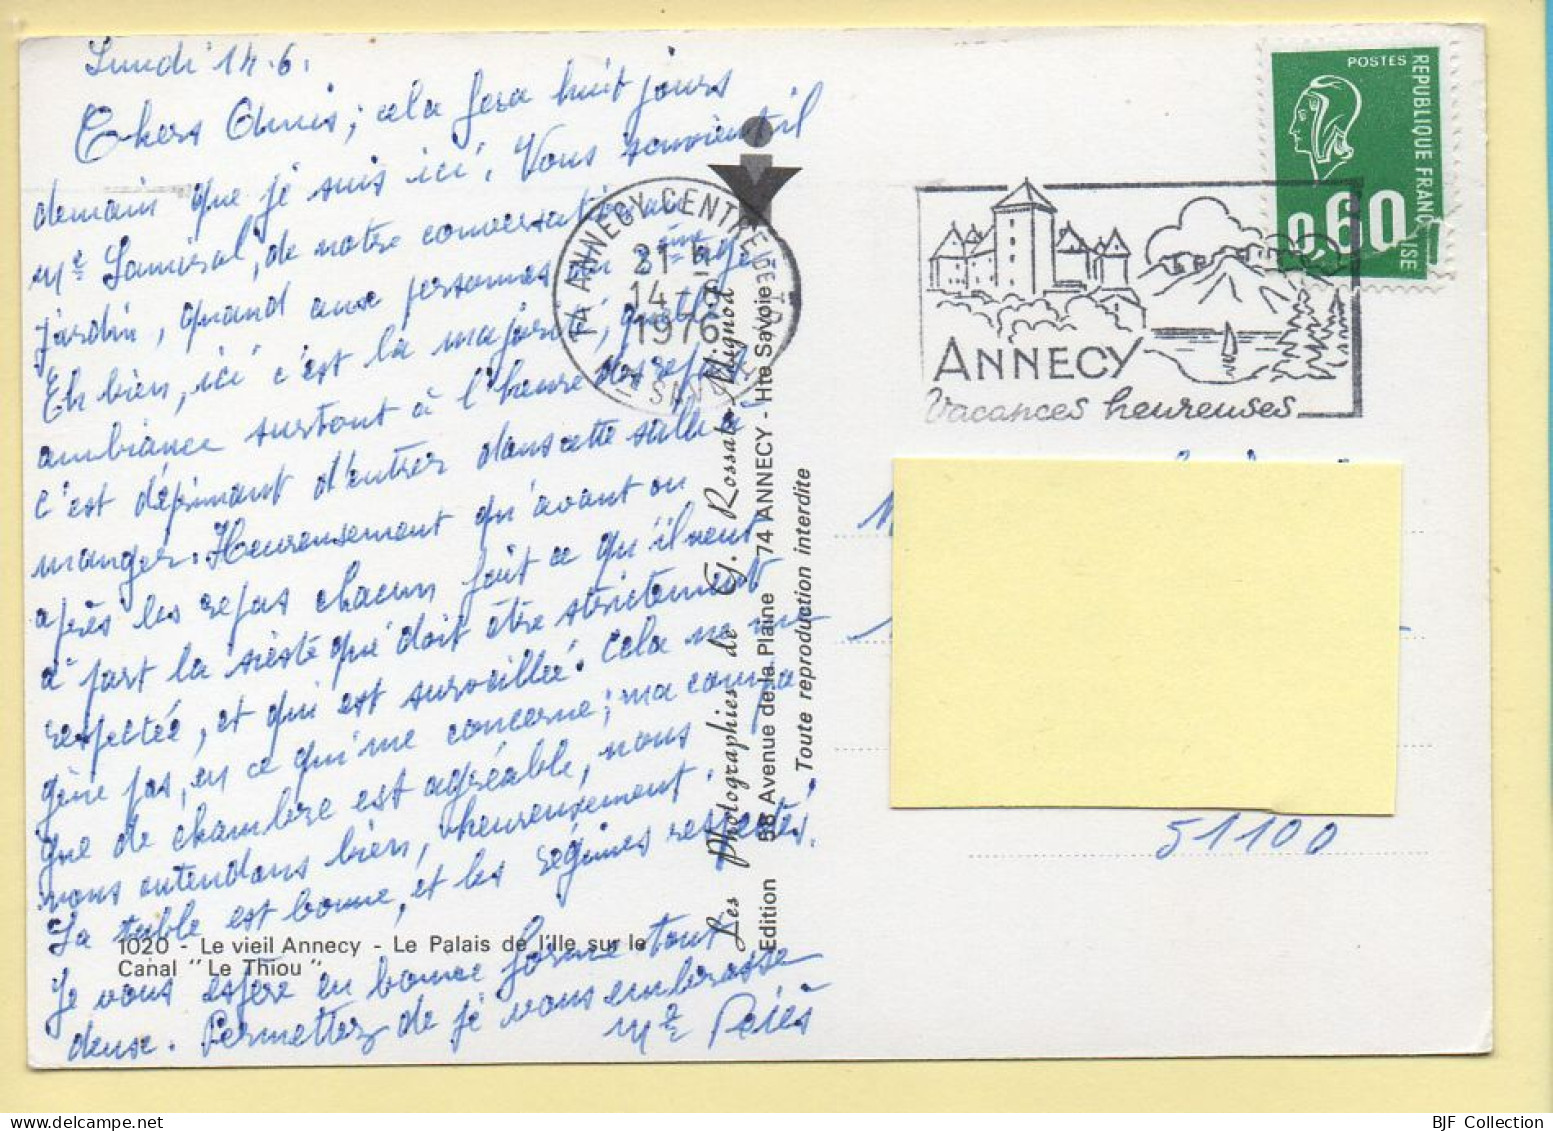 Lundi 14.6.
Chers Amis ; cela fera huit jours
demain que je suis ici. Vous souvient-il
Mme de notre conversation au
jardin, quand aux personnes du 3ème âge
Eh bien, ici c'est la majorité, quelle
ambiance surtout à l'heure des repas
c'est déprimant d'entrer dans cette salle à
manger. Heureusement qu'avant ou
après les repas chacun fait ce qu'il veut
à part la sieste qui doit être strictement
respectée, et qui est surveillée. Cela ne me
gêne pas, en ce qui me concerne ; ma compa
gne de chambre est agréable, nous
nous entendons bien, heureusement.
La table est bonne, et les régimes respectés.
Je vous espère en bonne forme tout
deux. Permettez de je vous embrasse
Mme
1020 - Le vieil Annecy - Le Palais de l'Ile sur le
Canal "Le Thiou"
Les Photographies de G. Rossat-Mignod
Edition 58 Avenue de la Plaine 74 ANNECY - Hte Savoie
Toute reproduction interdite
74 ANNECY CENTRE
21 H
1976
HTE SAVOIE
ANNECY
Vacances heureuses
POSTES
REPUBLIQUE FRANCAISE
0,60
51100
BJF Collection